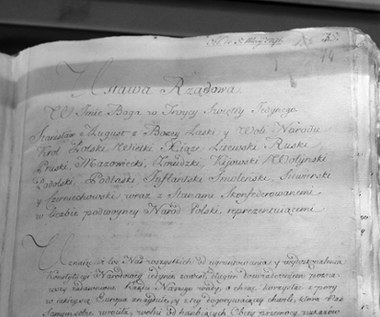 Ustawa Rządowa
W Imie Boga w Troycy Swiętey Jedynego.
Stanisław August z Bożey Łaski y Woli Narodu
Krol Polski Wielki Xiąże Litewski, Ruski,
Pruski, Mazowiecki, Zmudzki, Kijowski, Wołyński
Podolski, Podlaski, Inflantski, Smoleński, Siewierski
y Czerniechowski, wraz z Stanami Skonfederowanemi
w liczbie podwoyney Naród Polski reprezentuiącemi
Uznaiąc, iż los Nas wszystkich od ugruntowania y wydoskonalenia
Konstytucyi Narodowey iedynie zawisł, długim doswiadczeniem pozna-
wszy zadawnione Rządu Naszego wady, a chcąc korzystac z pory
w iakiey się Europa znayduie, y z tey dogorywaiącey chwili, która Nas
Samym sobie wróciła, wolni od hańbiących Obcey przemocy nakazów